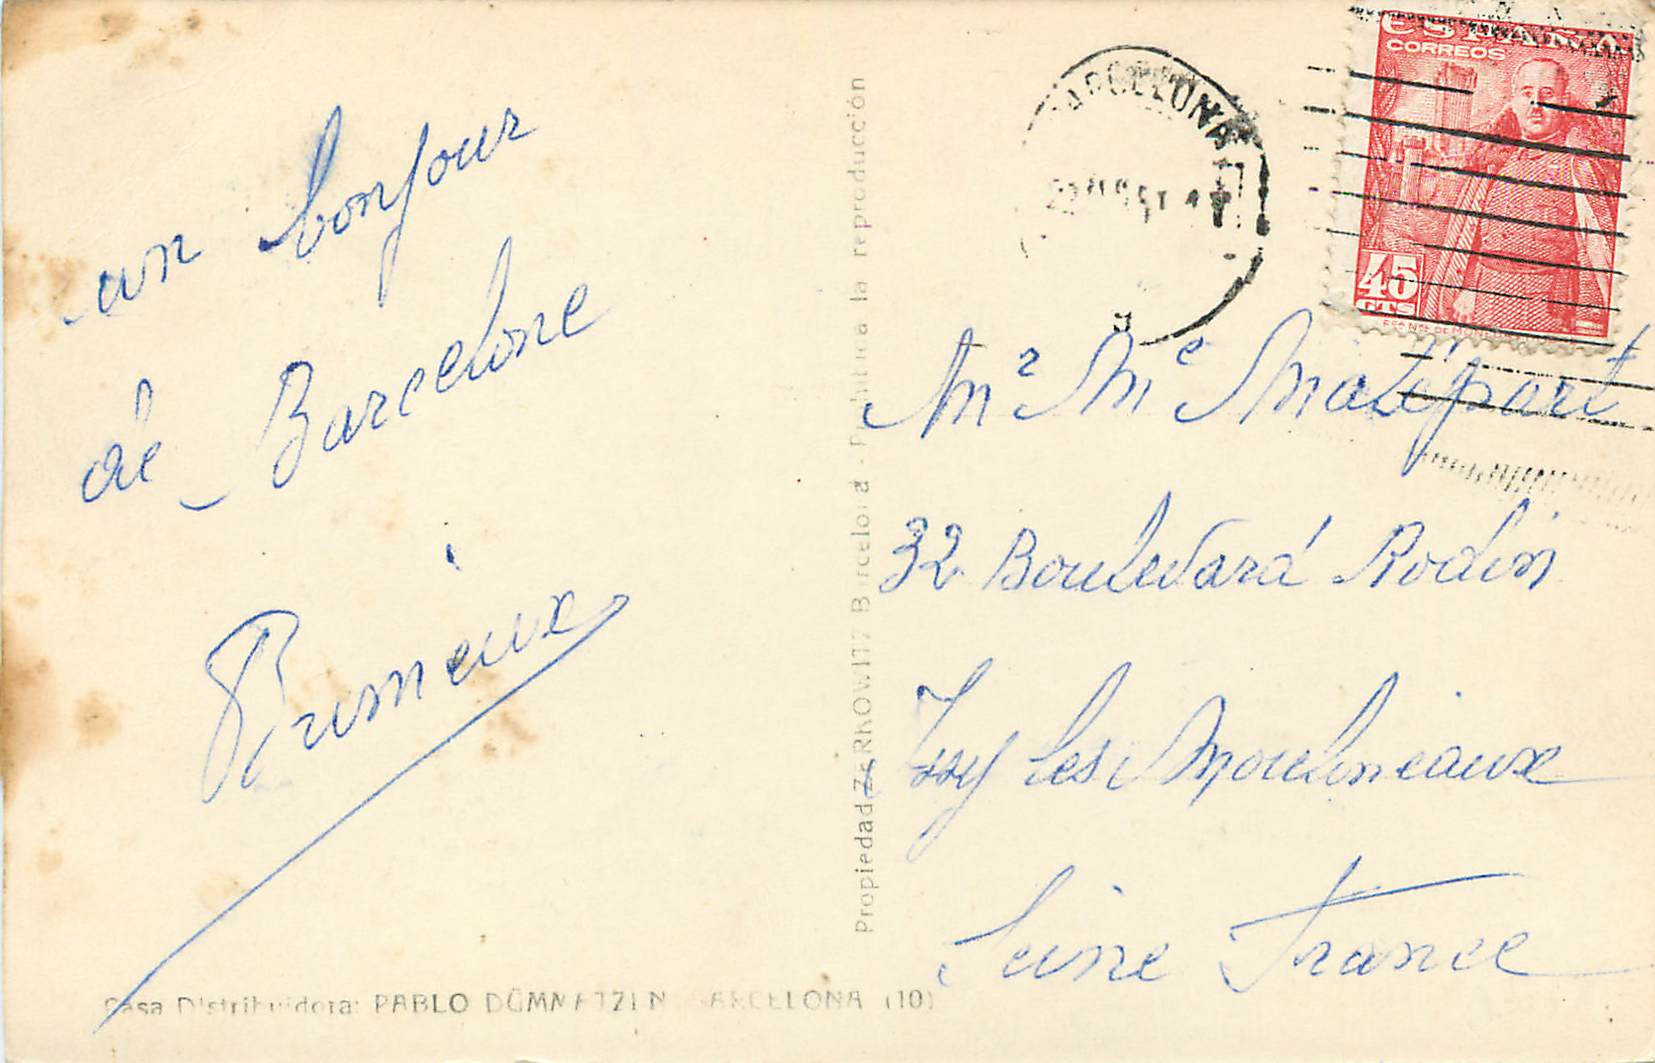 un bonjour
de Barcelone
ESPAÑA
CORREOS
45
CTS
BARCELONA
Mr Me Matépart
32 Boulevard Rodin
Issy les Moulineaux
Seine France
Propiedad ZERKOWITZ Barcelona - Prohibida la reproducción
Casa Distribuidora: PABLO DÜMMATZEN BARCELONA (10)